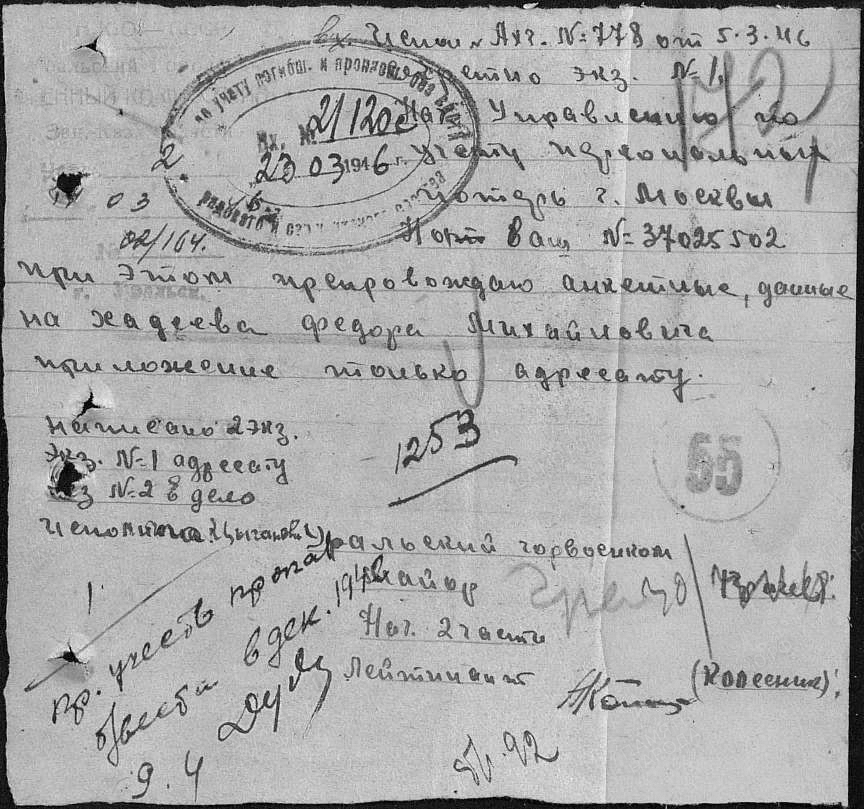 вх. Испол. Ахч. №778 от 5.3.46
Секретно экз. №1.
Нач. Управлению по
учету персональных
потерь г. Москвы
2.
по учету погибш. и пропавш. без вести
Вх. № 2/120с
"23" 03 1946 г.
рядового и
03
02/164.
г. Уральск.
На Ваш №37025502
при этом препровождаю анкетные, данные
на Хадеева Федора Михайловича
приложение только адресату.
Написано 2 экз.
Экз. №1 адресату
экз №2 в дело
1253
55
Уральский горвоенком
майор
Нач. 2 части
Лейтинант
(Колесник).
пр. учесть пропав
б/вести в дек. 194
9.4